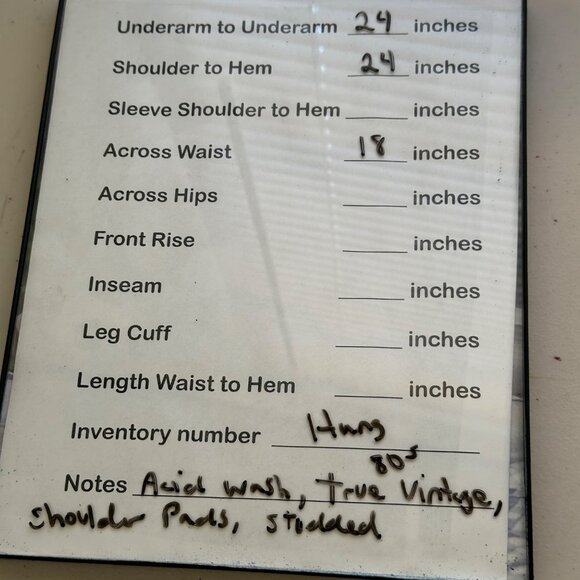 Underarm to Underarm 24 inches
Shoulder to Hem 24 inches
Sleeve Shoulder to Hem ____ inches
Across Waist 18 inches
Across Hips ____ inches
Front Rise ____ inches
Inseam ____ inches
Leg Cuff ____ inches
Length Waist to Hem ____ inches
Inventory number Hung
80s
Notes Acid wash, True Vintage,
Shoulder Pads, Studded